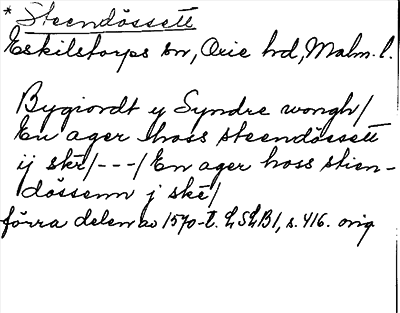 * Steendössett
Eskilstorps sn, Oxie hd, Malm. l.
Bygiordt y Syndre wongh/
En ager hoss steendössett
ij skè/---/ En ager hoss stien-
dössenn j skè/
förra delen av 1570-t. LSLB1, s. 416. orig